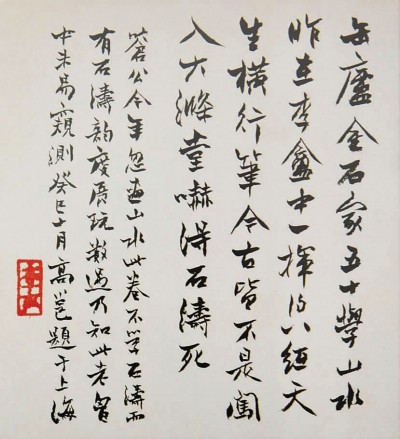 缶廬金石家五十學山水
昨在李盦中一揮得八紙天
生橫行筆今古皆不是闖
入大滌堂嚇得石濤死
公今年忽畫山水此卷不學石濤而
有石濤韵度展玩數過乃知此老胸
中未易窺測癸巳十月高邕題于上海